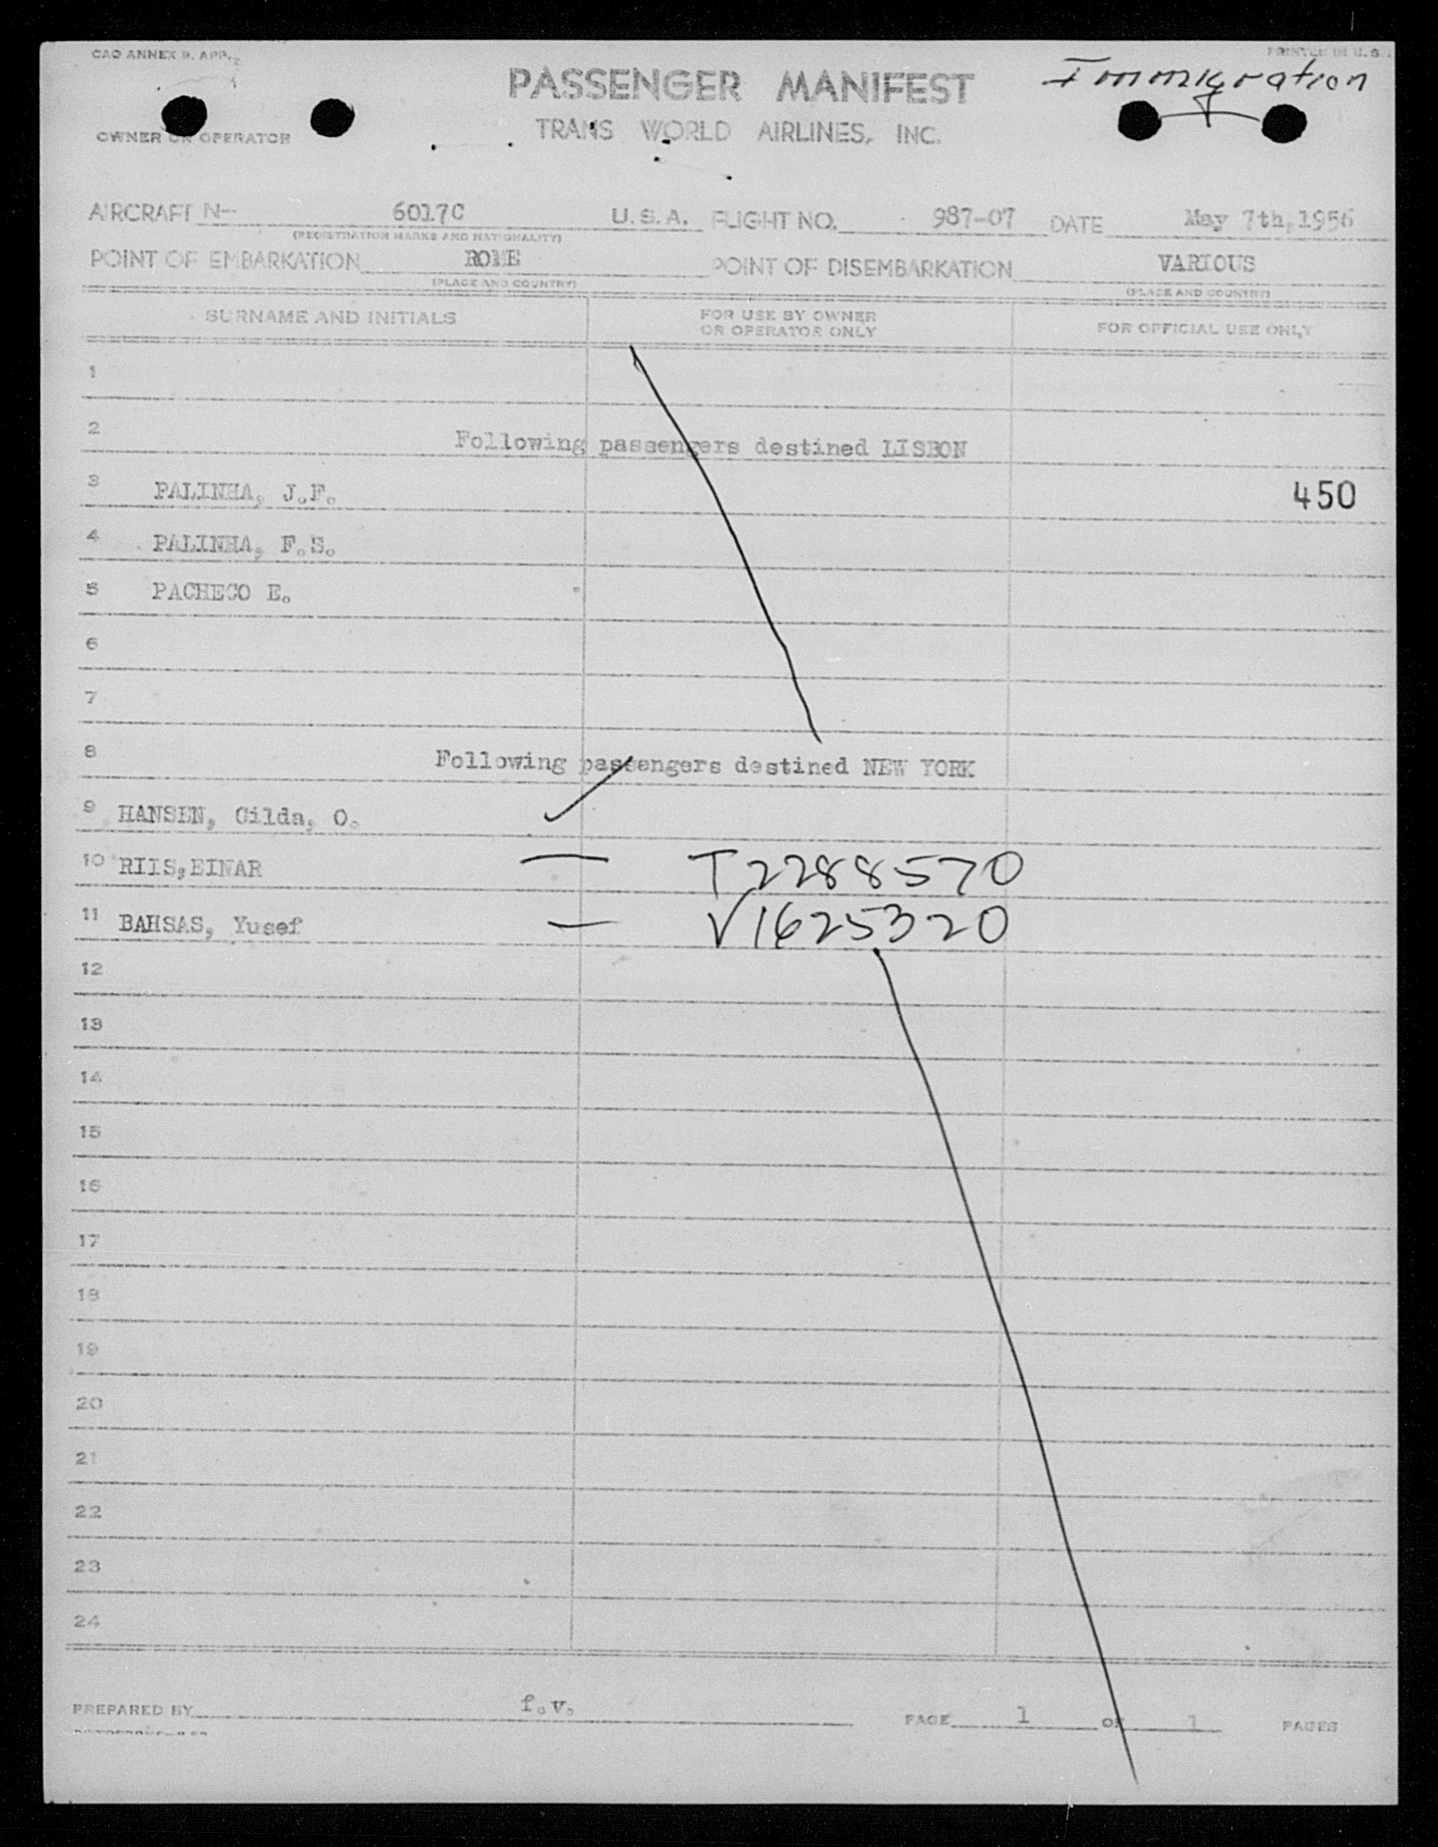 CAO ANNEX 9, APP.
PRINTED IN U.S.
Immigration
PASSENGER MANIFEST
OWNER OR OPERATOR
TRANS WORLD AIRLINES, INC.
AIRCRAFT N-- 6017C U.S.A. FLIGHT NO. 987-07 DATE May 7th, 1956
(REGISTRATION MARKS AND NATIONALITY)
POINT OF EMBARKATION ROME POINT OF DISEMBARKATION VARIOUS
(PLACE AND COUNTRY) (PLACE AND COUNTRY)
SURNAME AND INITIALS FOR USE BY OWNER OR OPERATOR ONLY FOR OFFICIAL USE ONLY
1
2 Following passengers destined LISBON
3 PALINHA, J.F. 450
4 PALINHA, F.S.
5 PACHECO E.
6
7
8 Following passengers destined NEW YORK
9 HANSEN, Gilda, O.
10 RIIS,EINAR — T2288570
11 BAHSAS, Yusef — V1625320
12
13
14
15
16
17
18
19
20
21
22
23
24
PREPARED BY f.v. PAGE 1 OF 1 PAGES